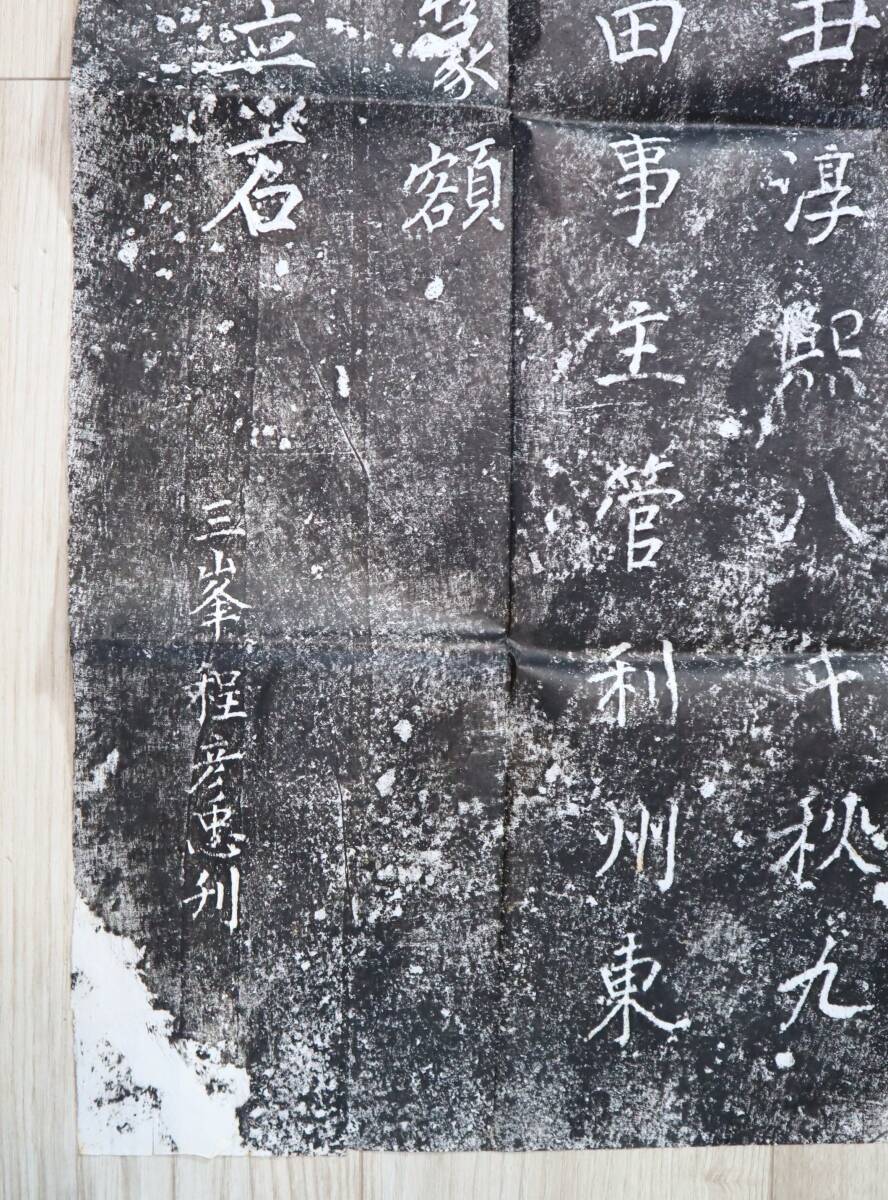 丑淳熙八年秋九
田事主管利州東
篆額
立石
三峯程彦忠刊